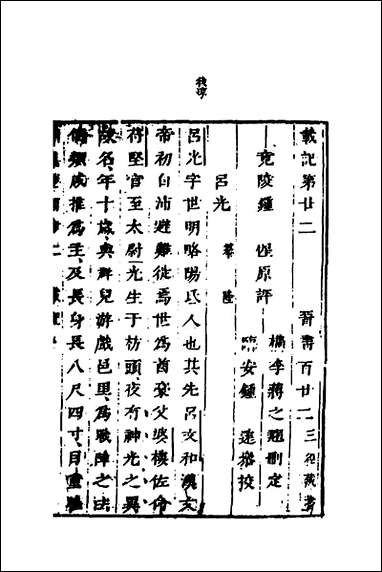 載記第廿二 晉書百廿二 三徑藏書
竟陵鍾 惺原評
檇李蔣之翹刪定
安鍾
呂光 纂 隆
呂光字世明略陽氐人也其先呂文和漢文
帝初自沛避難徙焉世爲酋豪父婆樓佐命
苻堅官至太尉光生于枋頭夜有神光之異
名年十歲與群兒游戲邑里爲戰陣之法
類咸推爲主及長身長八尺四寸目重瞳